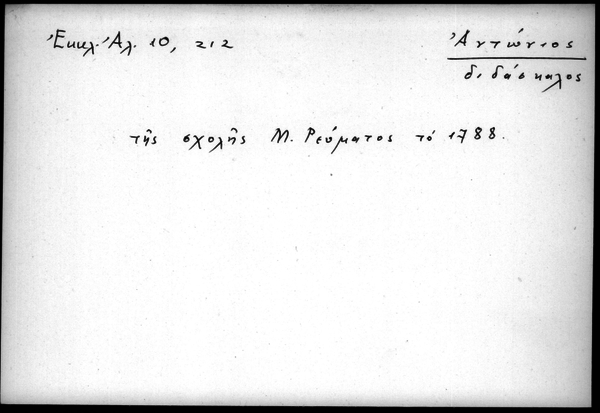 Ἐκκλ. Ἀλ. 10, 212
Ἀντώνιος
διδάσκαλος
τῆς σχολῆς Μ. Ρεύματος τό 1788.